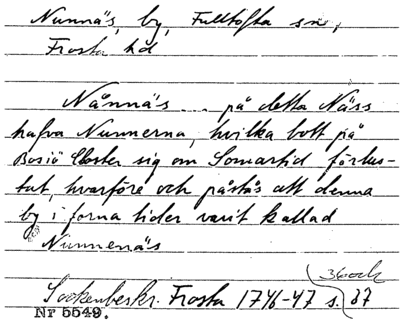 Nunnäs, by, Fulltofta sn,
Frosta hd
Nånnäs ... på detta Näss
hafva Nunnerna, hvilka bott på
Bosiö Closter sig om Somartid förlus-
tat, hvarföre och påstås att denna
by i forna tider varit kallad
Nunnenäs
36 och
Sockenbeskr. Frosta 1746-47 s. 37
Nr 5549.